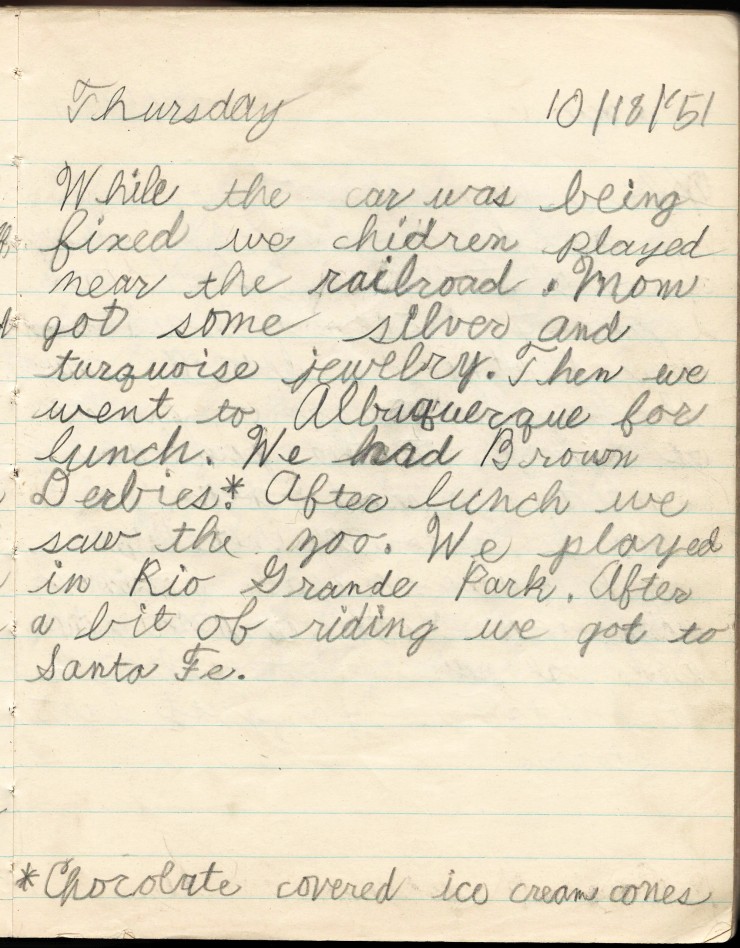 Thursday 10/18/'51
While the car was being
fixed we chidren played
near the railroad. Mom
got some silver and
turquoise jewelry. Then we
went to Albuquerque for
lunch. We had Brown
Derbies.* After lunch we
saw the zoo. We played
in Rio Grande Park. After
a bit of riding we got to
Santa Fe.
*Chocolate covered ice cream cones